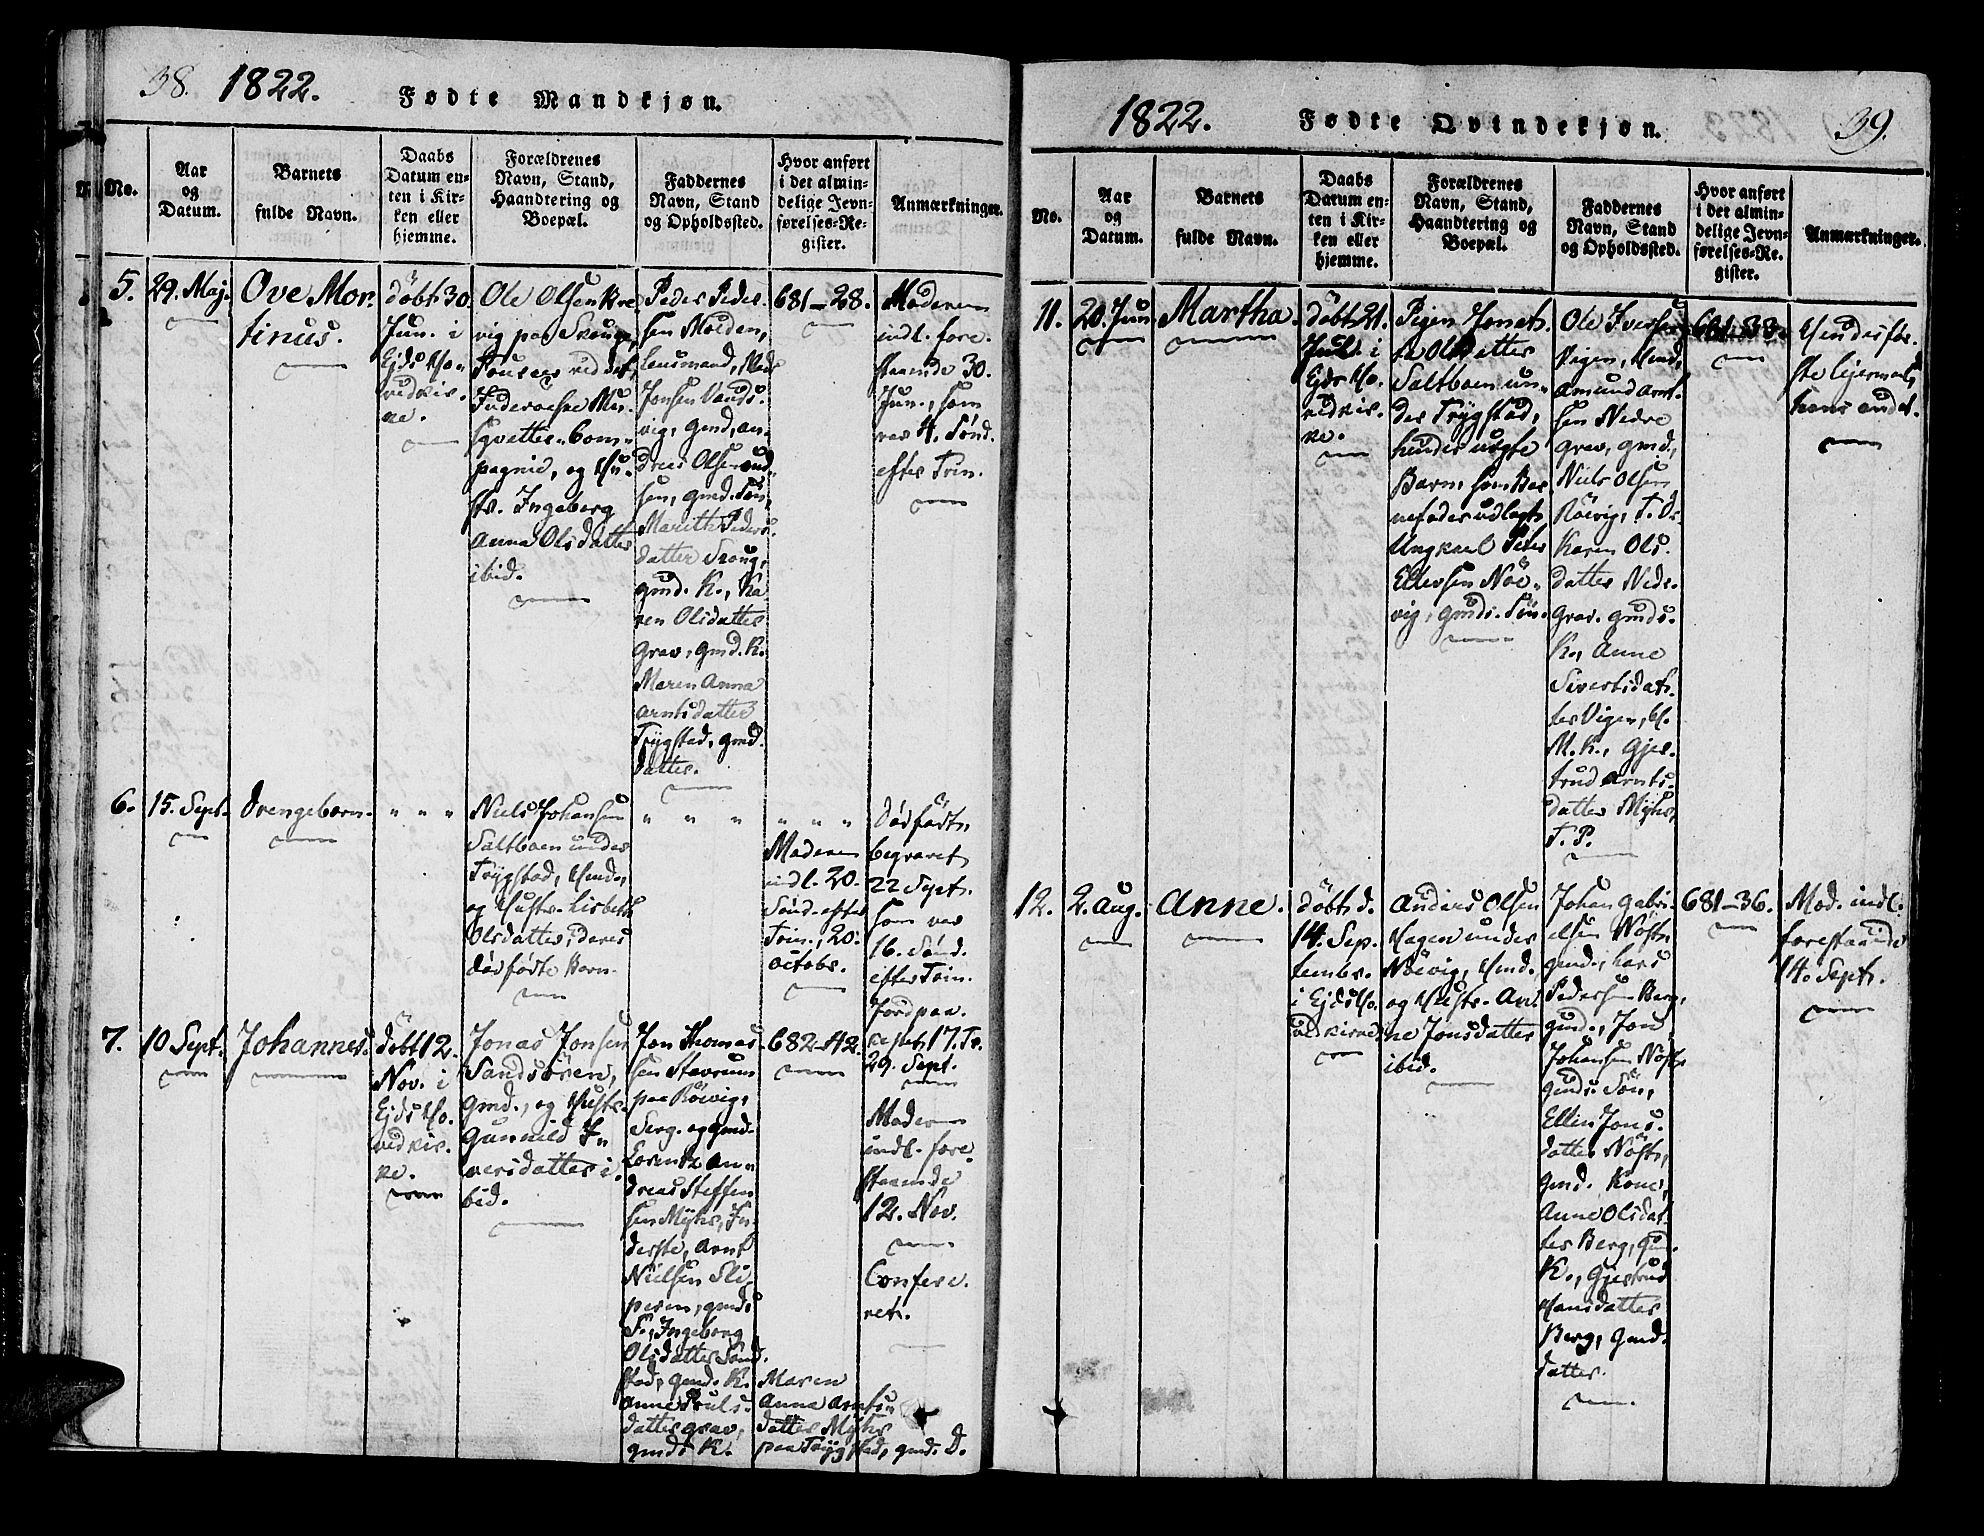 38. 1822. Fødte Mandkjøn.
No.
Aar
og
Datum.
Barnets
fulde Navn.
Daabs
Datum en-
ten i Kir-
ken eller
hjemme.
Forældrenes
Navn, Stand,
Haandtering og
Boepæl.
Faddernes
Navn, Stand
og Opholdssted.
Hvor anført
i det almin-
delige Jevn-
førelses-Re-
gister.
Anmærkninger.
5.
29. Maj.
Ove Mor-
tinus.
döbt 30.
Jun. i
Ejds Ho-
vedkir-
ke.
Ole Olsen
vig paa
ved det
Inderöeske Mus-
qvetter-Com-
pagnie, og Hu-
str. Ingeberg
Anna Olsdatter
ibid.
Peder Peder-
sen Molden,
Lensmand,
Jonsen Vands-
vig, gmd, An-
dreas Olsen
sen, gmd. Sön,
Marith Peders-
datter
gmd. K., Ka-
ren Olsdatter
Grav, gmd. K.
Maren Anna
Arntsdatter
Trÿgstad, gmd.
datter.
681-28.
Moderen
indl. fore-
staaende 30.
Jun., som
var 4. Sönd.
efter Trin.
6.
15. Sept.
Drengebarn.
" " "
Niels Johansen
Saltboen under
Trÿgstad, Hmd.,
og Hustr. Lisbeth
Olsdatter, deres
dödfödte Barn.
" " "
" " "
Moderen
indl. 20.
Sönd. efter
Trin., 20.
Octobr.
Dödfödt,
begravet
22 Sept.
som var
16. Sönd.
efter Trin.
Jordpaa-
kastet 17. Tr.
29. Sept.
7.
10 Sept.
Johannes.
döbt 12.
Nov. i
Ejds Ho-
vedkir-
ke.
Jonas Jonsen
Sandsören,
gmd., og Hustr.
Gunnild I-
versdatter i-
bid.
Jon Thomas-
sen Stavrum
paa Röivig,
Serg. og gmd.
Lorentz An-
dreas Steffen
sen Mÿhr, In-
derste, Arnt
Nielsen Sli-
peren, gmds
S., Ingeborg
Olsdatter Sund-
stad, gmd. K.
Anne Pouls-
datter Grav,
gmds K.
Maren
Anna Arnts-
datter Mÿhr
paa Trÿgstad, gmd. D.
682-42.
Moderen
indl. fore-
staaende
12. Nov.
Confere-
ret.
1822. Fødte Qvindekjøn. 39.
No.
Aar
og
Datum.
Barnets
fulde Navn.
Daabs
Datum en-
ten i Kir-
ken eller
hjemme.
Forældrenes
Navn, Stand,
Haandtering og
Boepæl.
Faddernes
Navn, Stand
og Opholdssted.
Hvor anført
i det almin-
delige Jevn-
førelses-Re-
gister.
Anmærkninger.
11.
20. Jun.
Martha.
döbt 21.
Jul. i
Ejds Ho-
vedkir-
ke.
Pigen
Olsdatter
Saltboen un-
der Trÿgstad,
hendes uægte
Barn, som Bar-
nefader udlagt
Ungkarl Peter
Ellevsen Nöe-
vig, gmds. Sön.
Ole Iversen
Vigen, Hmd,
Amund Arnt-
sen Nedre
Grav, gmd.,
Niels Olsen
Röivig,
Karen Ols-
datter Nedr.
Grav. gmds.
K., Anne
Sivertsdat-
ter Vigen, H.
M. K., Gjer-
trud Arnts-
datter Mÿhr,
T. P.
681-33.
Hendes för-
ste Lejermaal,
hans andet.
12.
2. Aug.
Anne.
döbt d.
14. Sep-
tember
i Ejds Ho-
vedkirke
Anders Olsen
Hagen under
Nöevig, Hmd.
og Hustr. An-
ne Jonsdatter
ibid.
Johan Gabri-
elsen Nöst,
gmd., Lars
Pedersen Berg,
gmd., Jon
Johansen Nöst
gmds Sön,
Ellen Jons-
datter Nöst,
gmd. Kone,
Anne Olsdat-
ter Berg, gmd.
K., Gjertrud
Hansdatter
Berg, gmd.
datter.
681-36.
Mod. indl.
forestaaende
14. Sept.